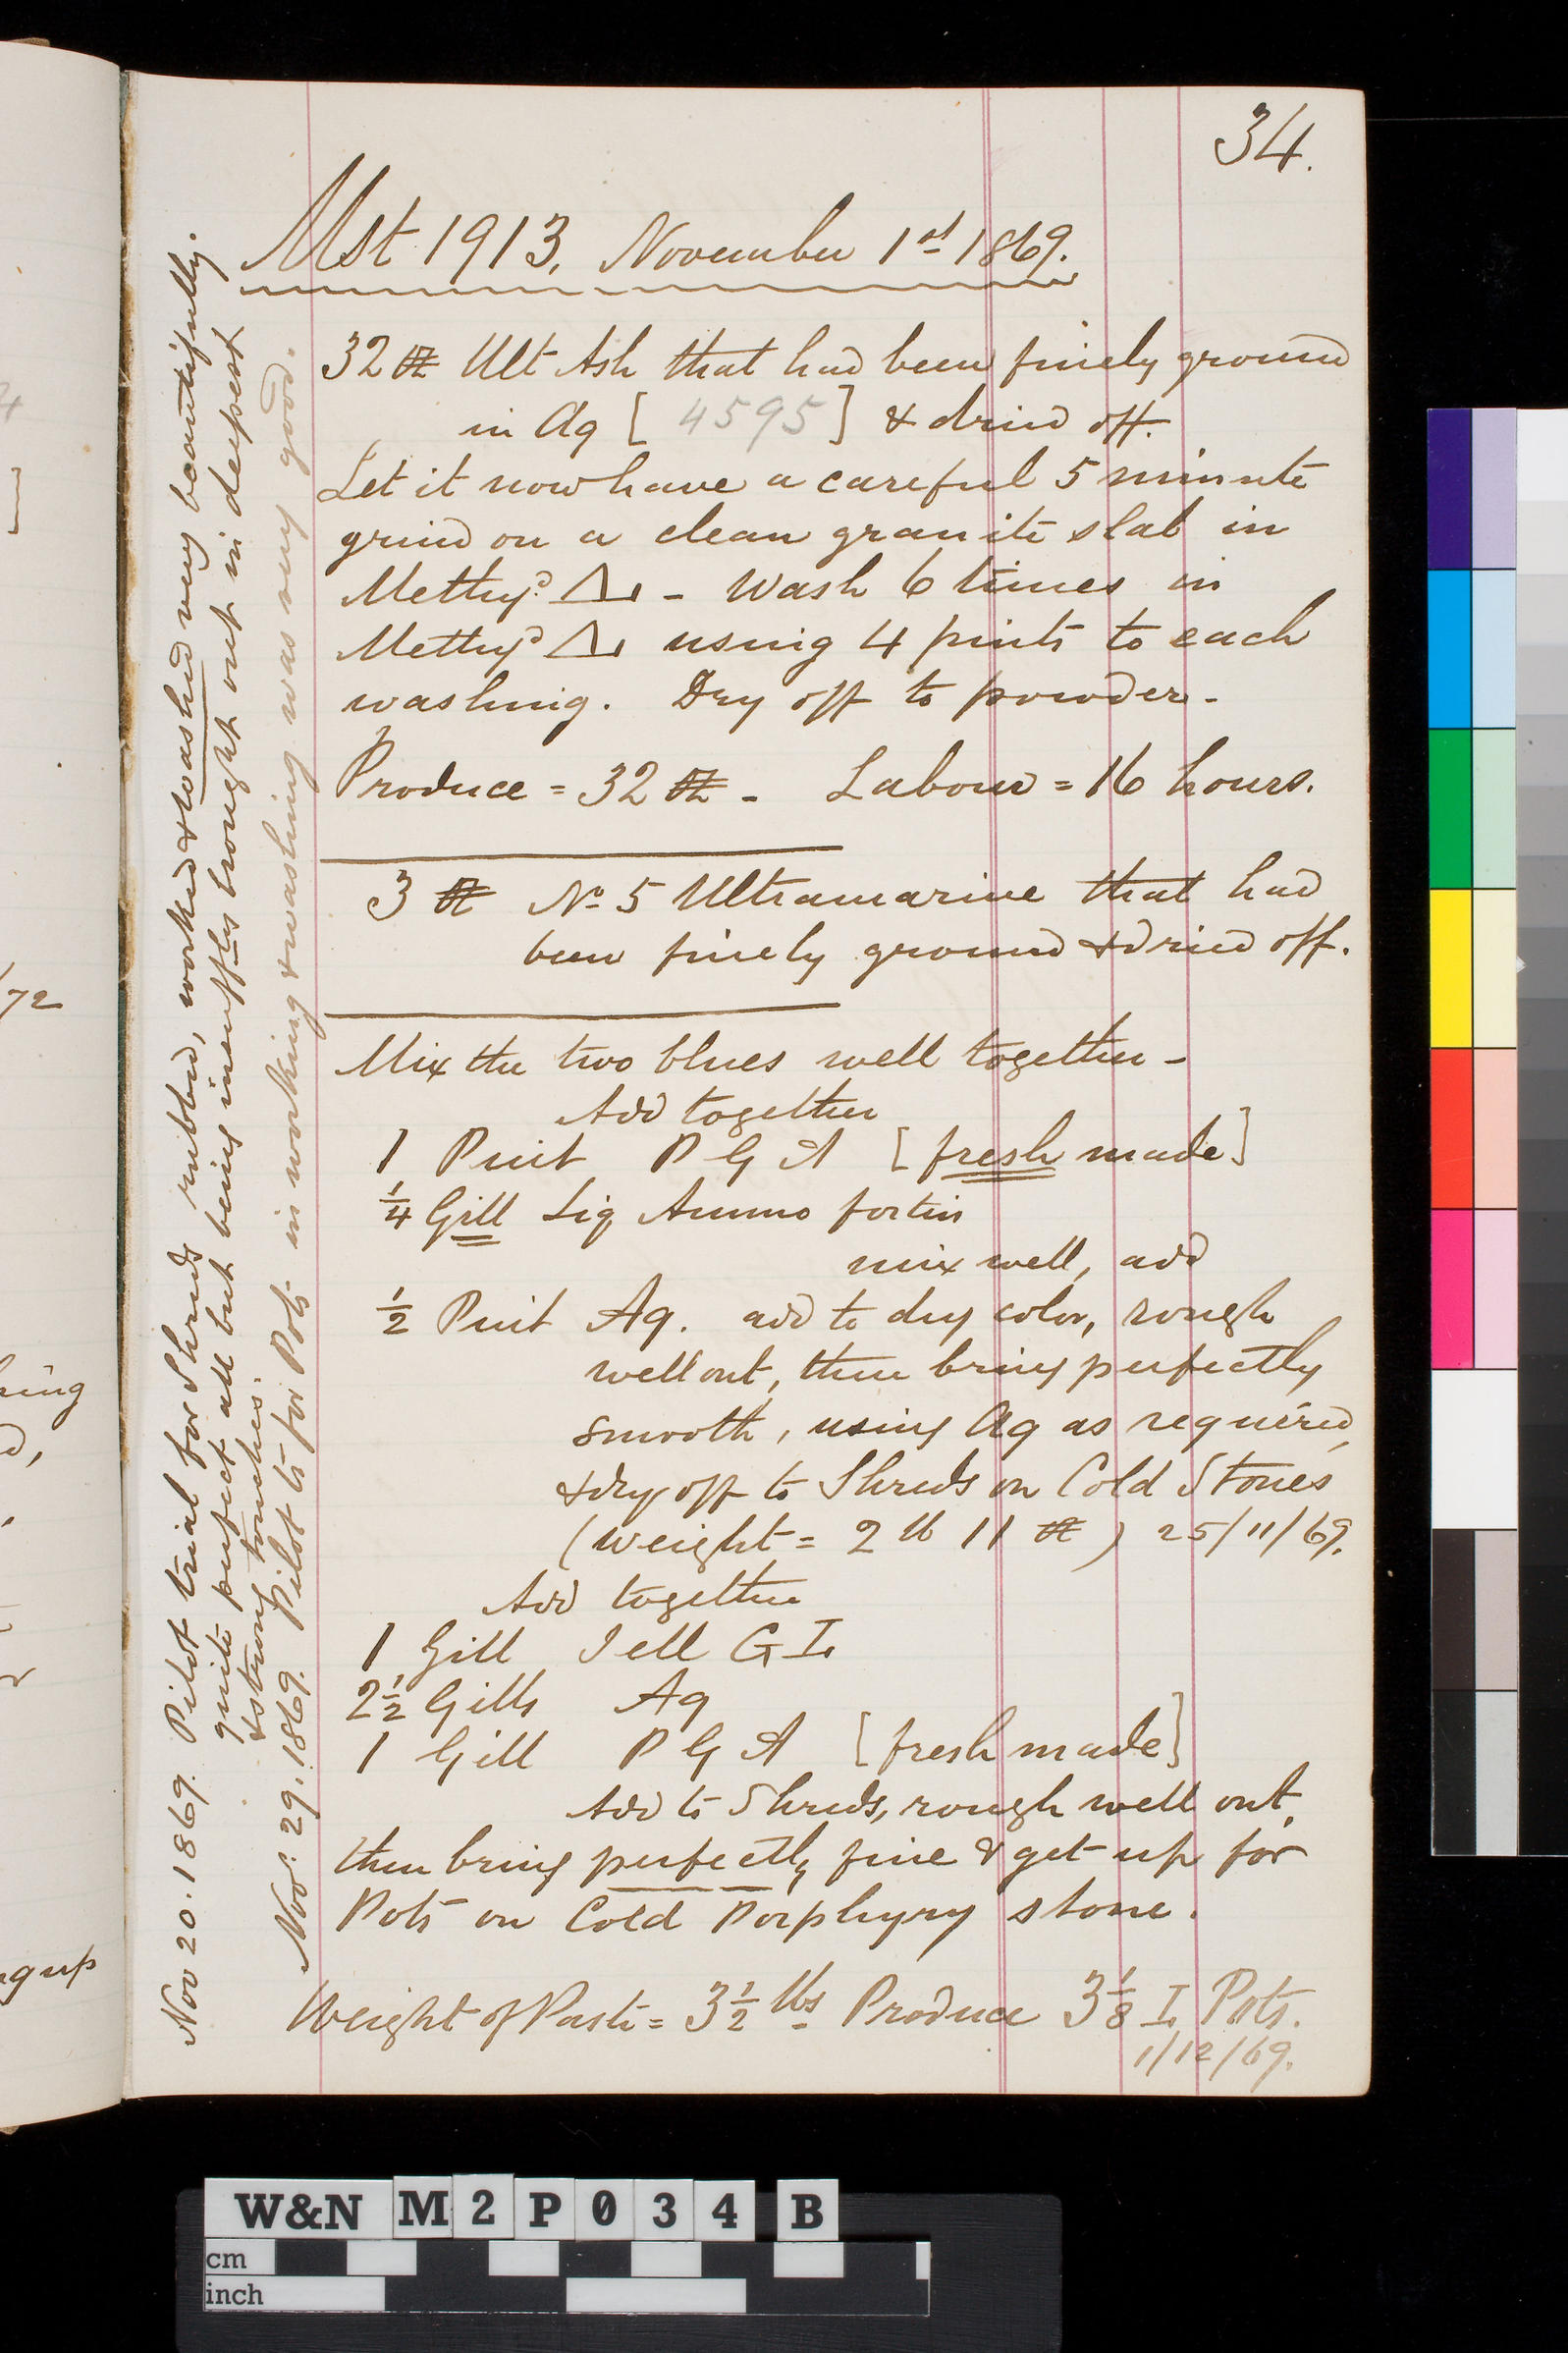 34.
Mst 1913. November 1st 1869.
32 oz Ult Ash that had been finely ground
in Aq [ 4595 ] & dried off.
Let it now have a careful 5 minute
grind on a clean granite slab in
Wash 6 times in
using 4 pints to each
washing. Dry off to powder.
Produce = 32 oz - Labour = 16 hours.
3 oz No 5 Ultramarine that had
been finely ground & dried off.
Mix the two blues well together -
Add together
1 Pint P G A [fresh made]
1/4 Gill Liq Ammo fortis
mix well, add
1/2 Pint Aq. add to dry color, rough
well out, then bring perfectly
smooth, using Aq as required,
& dry off to Shreds on Cold Stones
(weight = 2 lb 11 oz) 25/11/69.
Add together
1 Gill Jell G I
2 1/2 Gills Aq
1 Gill P G A [fresh made]
Add to Shreds, rough well out,
then bring perfectly fine & get up for
Pots on Cold Porphyry stone.
Weight of Paste = 3 1/2 lbs Produce 3 1/8 I Pots.
1/12/69.
Nov 20. 1869. Pilot trial for Shreds rubbed, worked & washed very beautifully.
quite perfect all but being insufftly brought out in deepest
& strong touches.
Nov. 29. 1869. Pilot to for Pots in working & washing was very good.
72
hing
d,
ng up
W&N M2P034 B
cm
inch